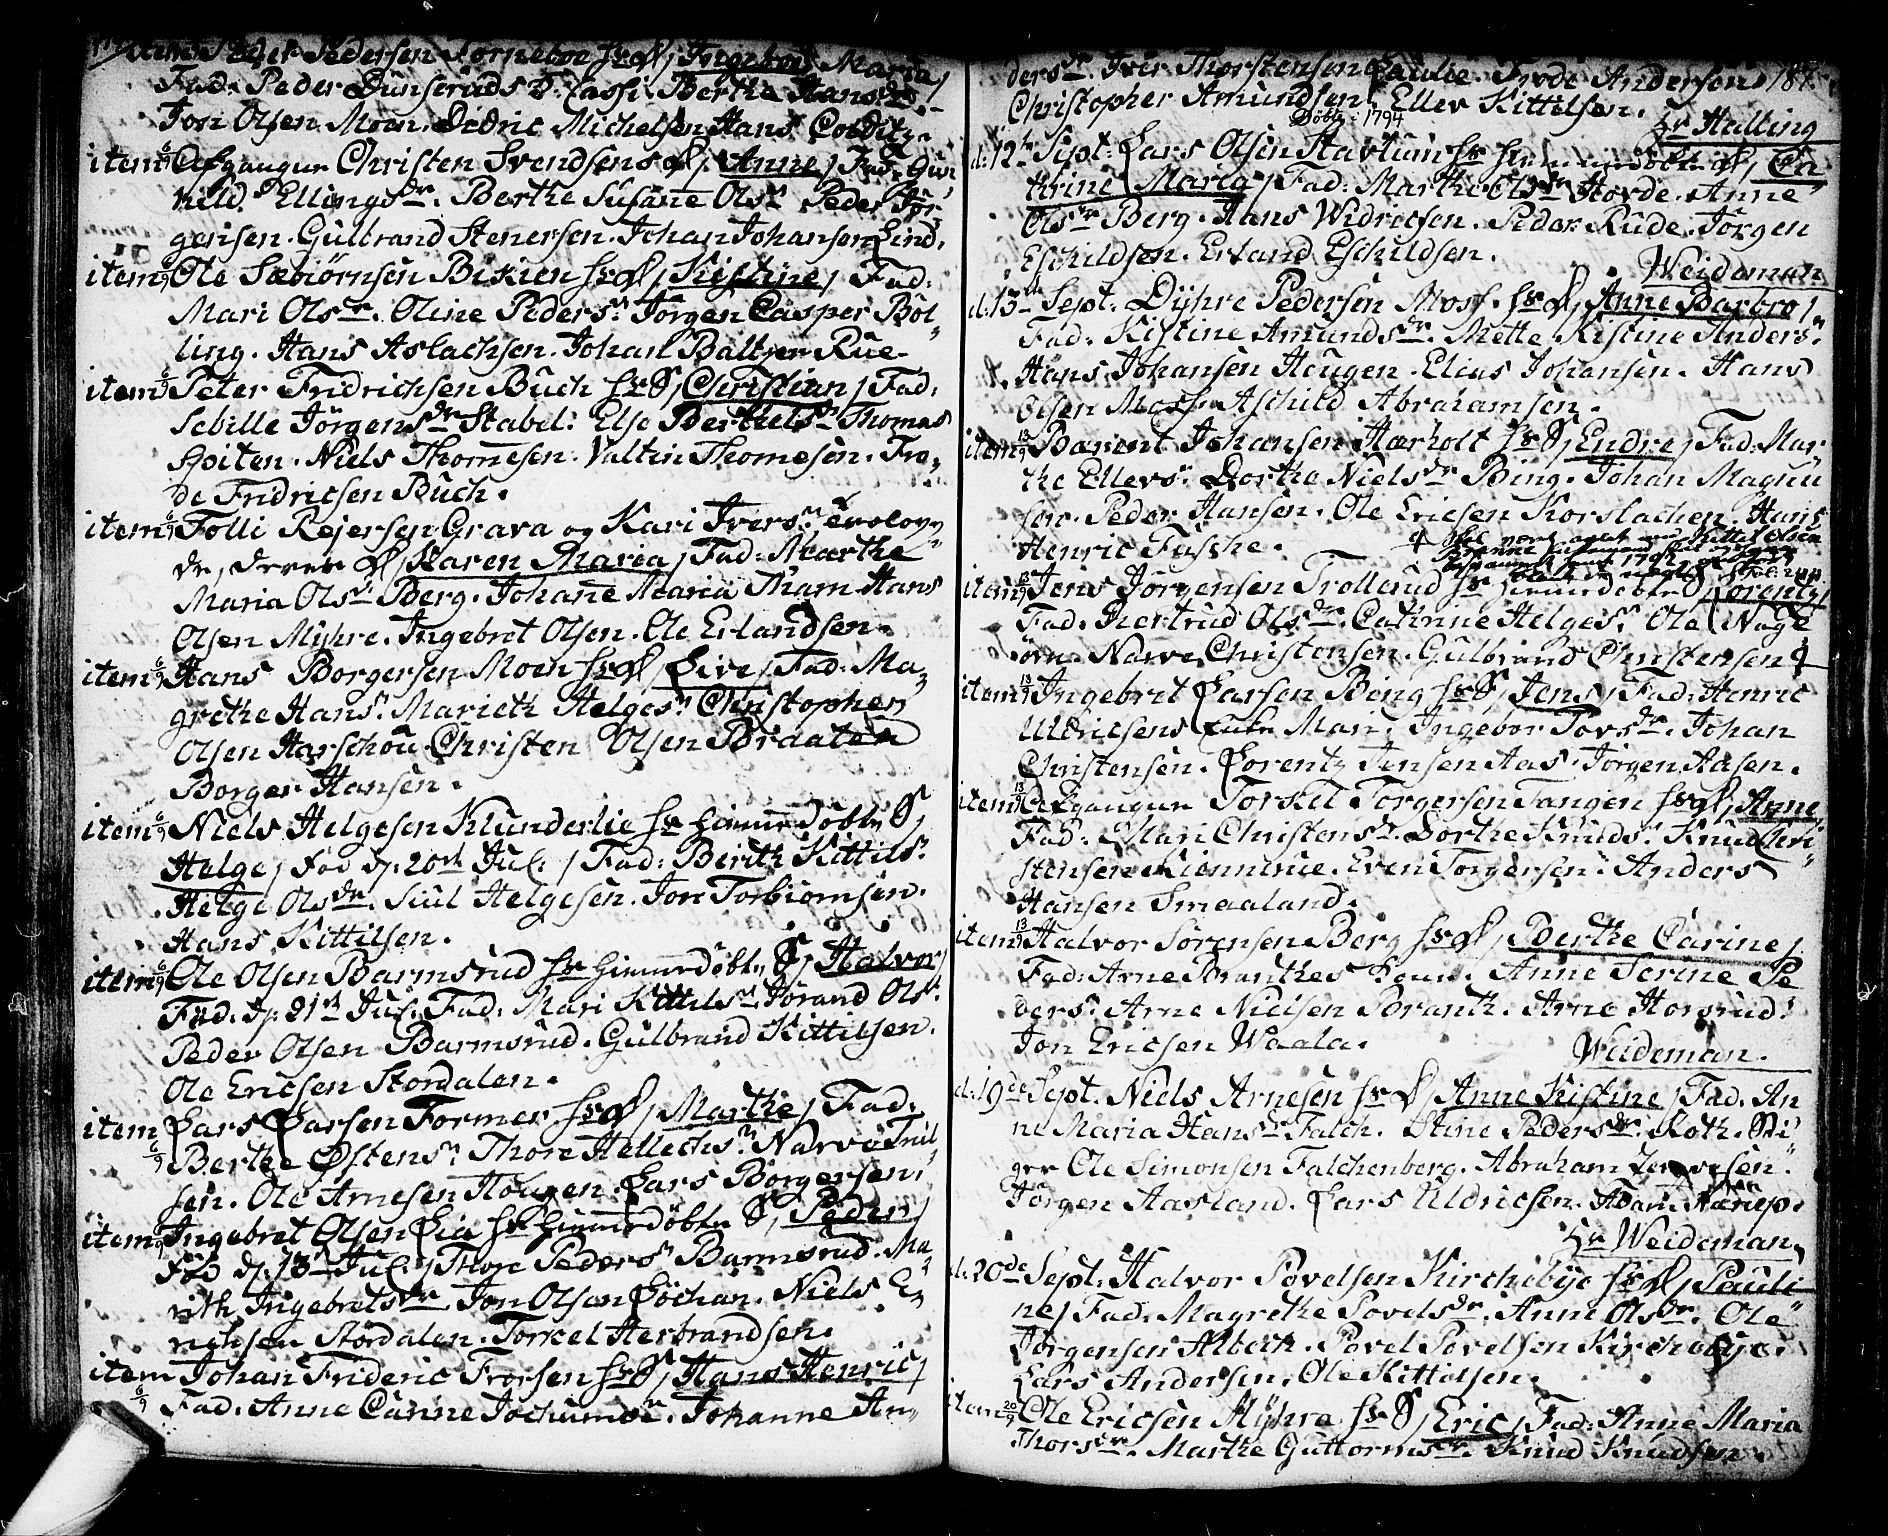 item Peder Pedersen Torneboe hs: D, Ingebor Maria,
Fad: Peder Dunseruds D: Cassi. Berthe Hansdr.
Jon Olsen Moen. Didric Michelsen. Hans Colditz.
item 6/9 Afgangne Christen Svendsens D, Anne, Fad: Gun
hild Ellingsdr. Berthe Susane Olsdr. Peder Jör
gensen. Gulbrand Stenersen. Johan Johansen Lind.
item 6/9 Ole Sæbiørnsen Bikien hs: D, Kistine, Fad:
Mari Olsdr. Oline Pedersdr. Jörgen Casper Böl
ling. Hans Aslachsen. Johan Baltzer Rue.
item 6/9 Peter Fridrichsen Buch hs: S, Christian, Fad:
Sebille Jörgensdr Stabel. Else Berthelsdr Thomas
Spiten. Niels Thomesen. Valtin Thomesen. Fro
de Fridricsen Buch.
item 6/9 Folli Rejersen Grava og Kari Iversdr
de, deres D, Karen Maria, Fad: Marthe
Maria Olsdr Berg. Johanne Maria Tham. Hans
Olsen Myhre. Ingebret Olsen. Ole Erlandsen.
item 6/9 Hans Borgersen Moen hs: D, Live, Fad: Ma
grethe Hansdr. Marieth Helgesdr Christopher
Olsen Harschou. Christen Olsen Braaten
Borger Hansen.
item 6/9 Niels Helgesen Klunderlie hs hiemmedöbte S,
Helge, fød d. 20de Jul. / Fad: Berith Kittilsdr
Helge Olsdr. Siul Helgesen. Jon Torbiornsen.
Hans Kittilsen.
item 6/9 Ole Olsen Barmsrud hs hiemmedöbte S, Halvor,
Fød. d. 21de Jul. Fad: Mari Kittilsdr Jørand Olsdr
Peder Olsen Barmsrud. Gulbrand Kittilsen.
Ole Ericsen Stordalen.
item 6/9 Lars Larsen Former hs: D, Marthe, Fad:
Berthe Østensdr Thore Hellechsdr Narve Troil
sen. Ole Arnesen Hougen. Lars Borgersen.
item 6/9 Ingebret Olsen Lia hs hiemmedöbte S, Peder,
Fød d. 13de Jul. / Thore Pedersdr Barmsrud. Ma
rith Ingebretsdr Jon Olsen Löchan. Niels E
richsen Stordalen. Torkel Herbrandsen.
item 6/9 Johan Frideric Frorsen hs: S, Hans Henric,
Fad: Anne Carine Jochumsdr. Johanne An
dersdr. Iver Thorstensen Laulie. Frode Andersen 187.
Christopher Amundsen. Eller Kittilsen.
Döbte 1794
Hr Halling
d: 12te Sept: Lars Olsen Startum hs hiemmedöbte D, Ca
thrine Maria, Fad: Marthe Olsdr Horde. Anne
Olsdr Berg. Hans Widricsen. Peder Rude. Jörgen
Eschildsen. Erland Eschildsen.
Weideman
d: 13de Sept: Dyhre Pedersen Moss hs: D, Anne Barbro,
Fad: Kistine Amundsdr. Mette Kistine Andersdr
Hans Johansen Hougen. Elias Johansen. Hans
Olsen Moss. Aschild Abrahamsen.
item 13/9 Bærent Johansen Hærholt hs: S, Endre, Fad: Mar
the Ellersdr Dorthe Nielsdr Bing. Johan Magnu
sen. Peder Hansen. Ole Ericsen Korslachen. Hans
Henric Fusche.
item 13/9 Jens Jörgensen Trollerud hs hiemmedöbte S, Lorentz,
Fad: Giertrud Olsdr. Catrine Helgesdr Ole Nage
örn. Narve Christensen. Gulbrand Christensen
item 13/9 Ingebret Larsen Bing hs: S, Jens, Fad: Henric
Uldricsens Enke Mari. Ingebor Torsdr. Johan
Christensen. Lorentz Jensen Aas. Jörgen Aasen.
item 13/9 Afgangne Torkel Torgersen Tangen hs: D, Anne,
Fad: Mari Christensdr. Dorthe Knudsdr Knud Chri
stensen Kiennerue. Even Torgersen. Anders
Hansen Smaaland.
item 13/9 Halvor Sörensen Berg hs: D, Berthe Carine,
Fad: Arne Branthes Kone. Anne Serine Pe
dersdr Arne Nielsen Branth. Arne Horsrud.
Jon Ericsen Waala.
Weideman.
d. 19de Sept. Niels Arnesen hs: D, Anne Kistine, Fad: An
ne Maria Hansdr Falch. Stine Pedersdr. Roth. Sti
ger Ole Simonsen Falchenberg. Abraham
Jörgen Aasland. Lars Uldricsen. Adam Næriep.
Hr Weideman
d. 20de Sept: Halvor Povelsen Kirchebye hs: D, Pauli
ne, Fad: Magrethe Povelsdr. Anne Olsdr. Ole
Jörgensen Albech. Povel Povelsen Kirchebye.
Lars Andersen. Ole Kittilsen.
item 20/9 Ole Ericsen Myhre hs: S, Eric, Fad: Anne Maria
Thorsdr. Marthe Guttormsdr. Knud Knudsen.